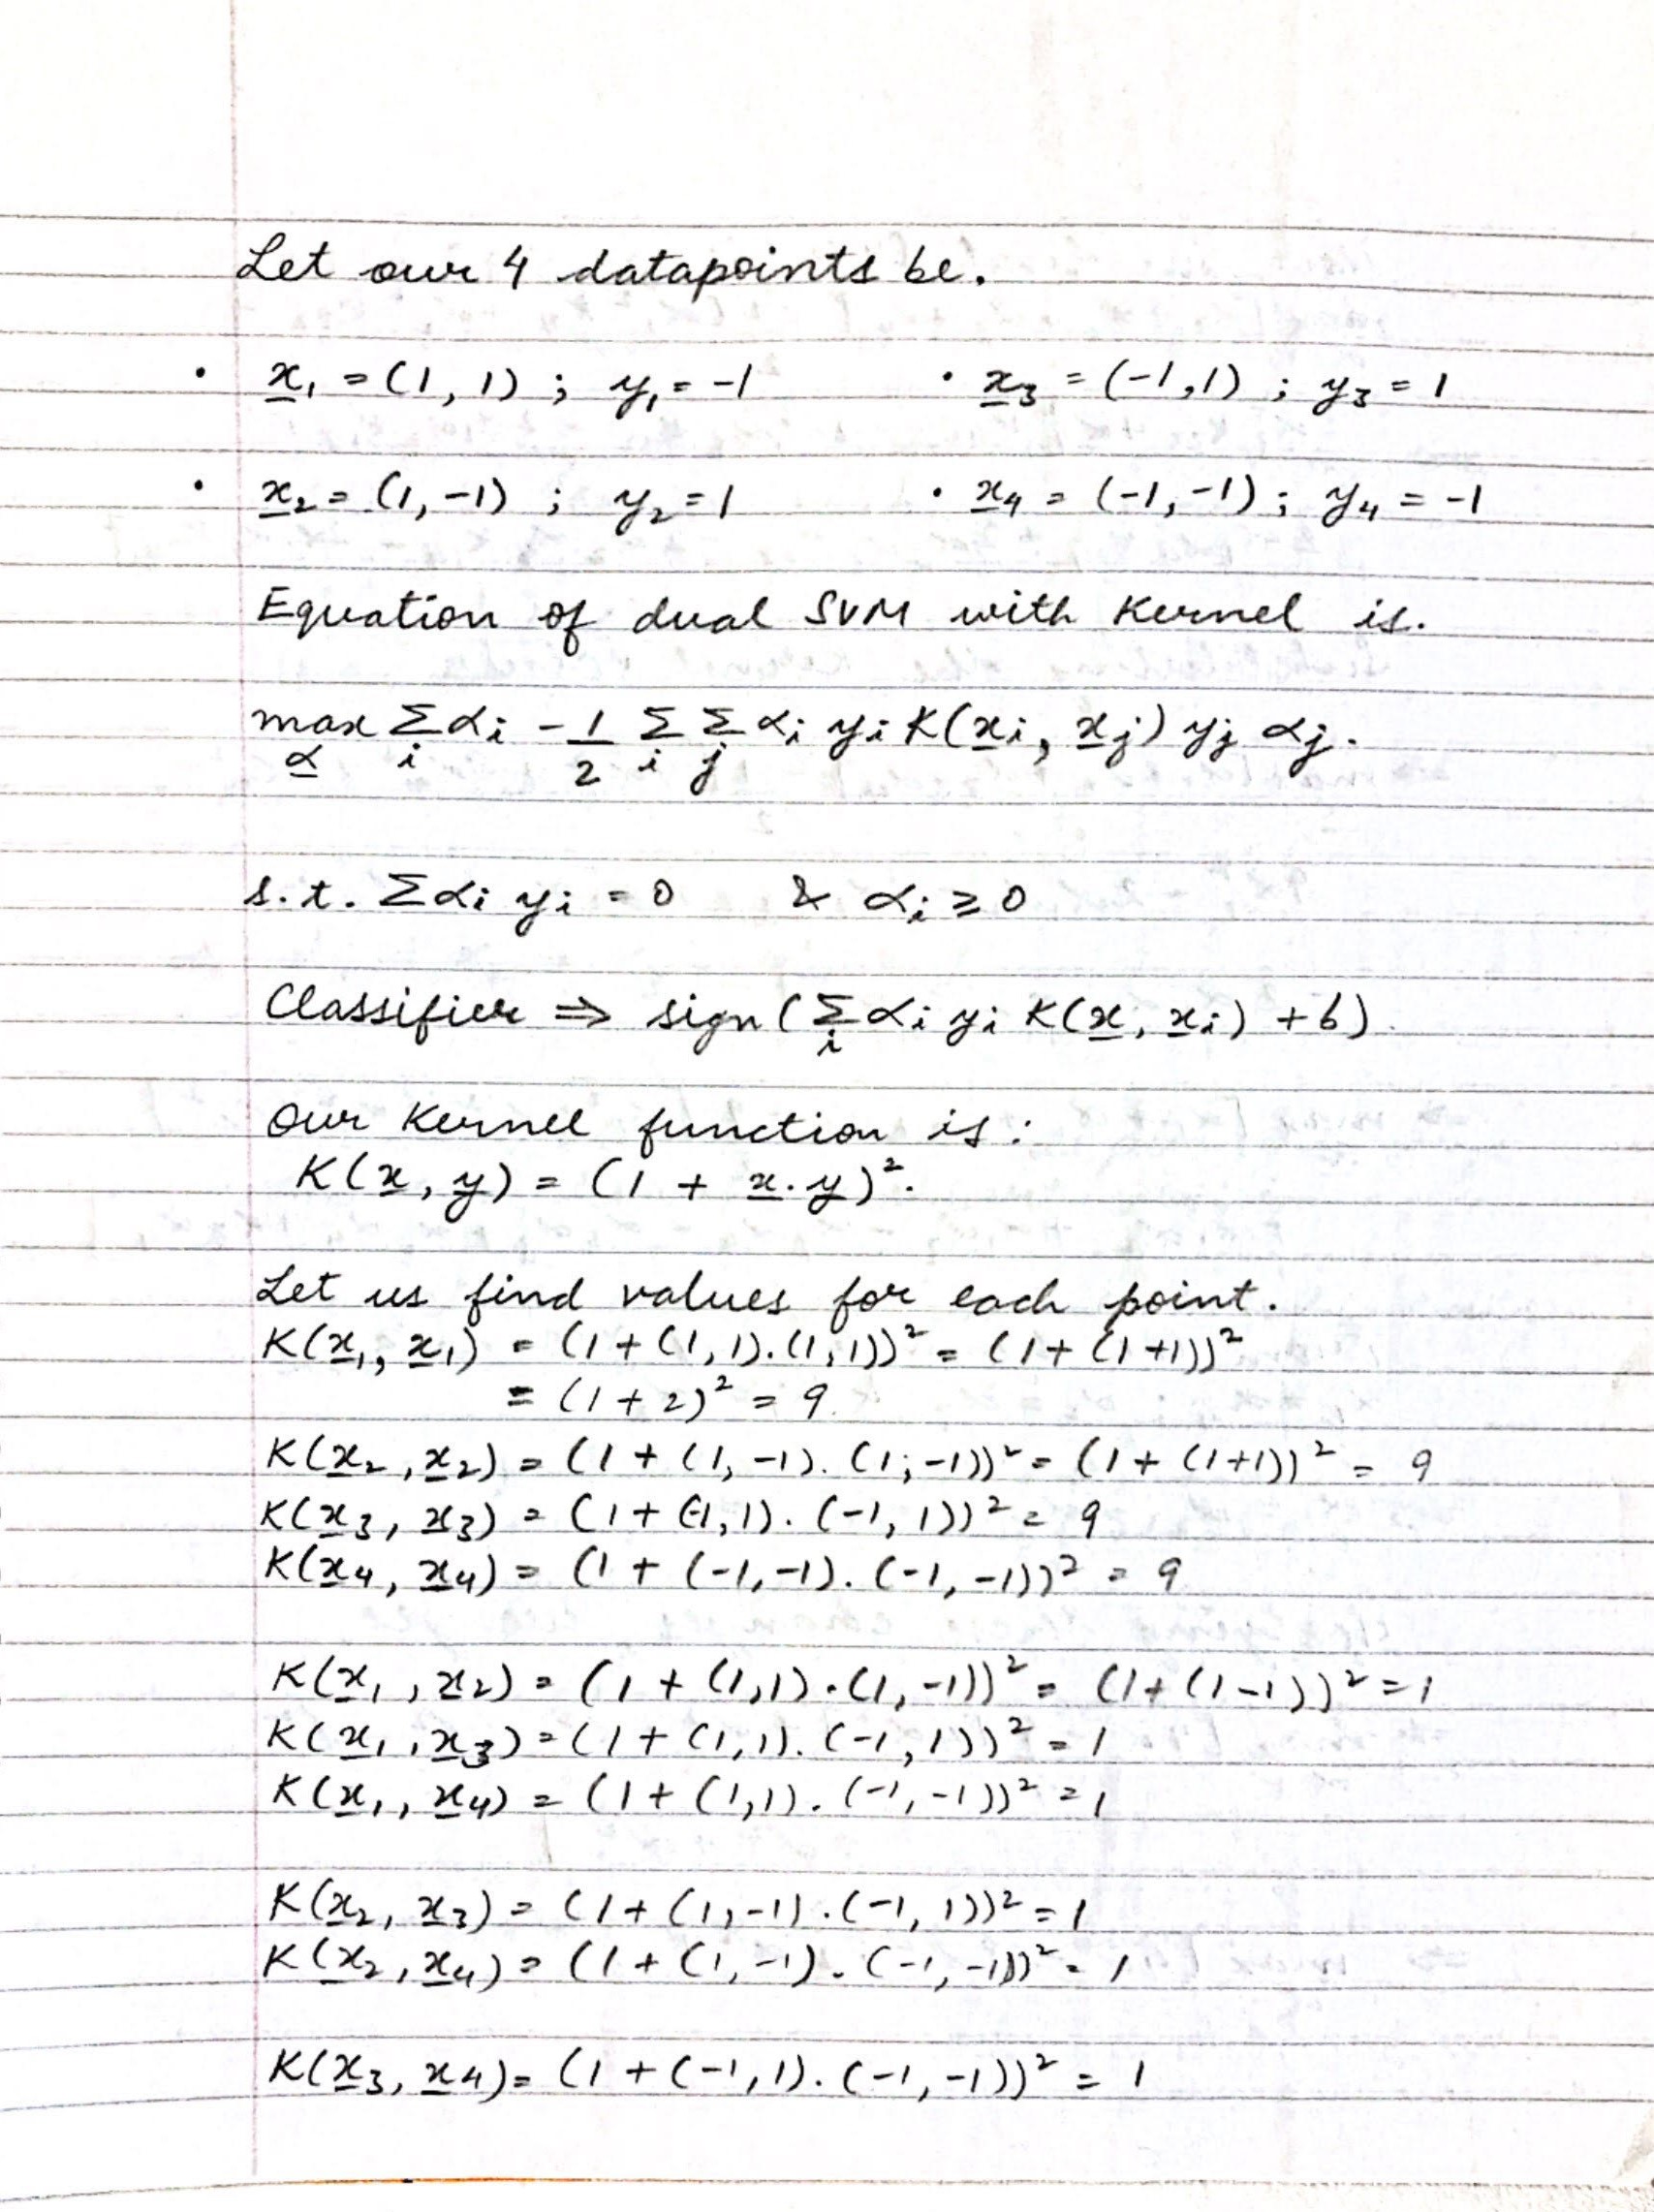 Let our 4 datapoints be.
• x₁ = (1, 1) ; y₁ = -1 • x₃ = (-1,1) ; y₃ = 1
• x₂ = (1, -1) ; y₂ = 1 • x₄ = (-1, -1) ; y₄ = -1
Equation of dual SVM with Kernel is.
max Σ αi - 1/2 Σ Σ αi yi K(xi, xj) yj αj.
α i i j
s.t. Σαi yi = 0 & αi ≥ 0
Classifier ⇒ sign(Σ αi yi K(x, xi) + b)
i
Our Kernel function is :
K(x, y) = (1 + x.y)².
Let us find values for each point.
K(x₁, x₁) = (1 + (1, 1).(1, 1))² = (1 + (1+1))²
= (1 + 2)² = 9.
K(x₂, x₂) = (1 + (1, -1). (1, -1))² = (1 + (1+1))² = 9
K(x₃, x₃) = (1 + (-1,1). (-1, 1))² = 9
K(x₄, x₄) = (1 + (-1,-1). (-1, -1))² = 9
K(x₁, x₂) = (1 + (1,1).(1, -1))² = (1+ (1-1))² = 1
K(x₁, x₃) = (1 + (1,1). (-1, 1))² = 1
K(x₁, x₄) = (1 + (1,1). (-1, -1))² = 1
K(x₂, x₃) = (1 + (1,-1).(-1, 1))² = 1
K(x₂, x₄) = (1 + (1, -1). (-1, -1))² = 1
K(x₃, x₄) = (1 + (-1, 1). (-1, -1))² = 1